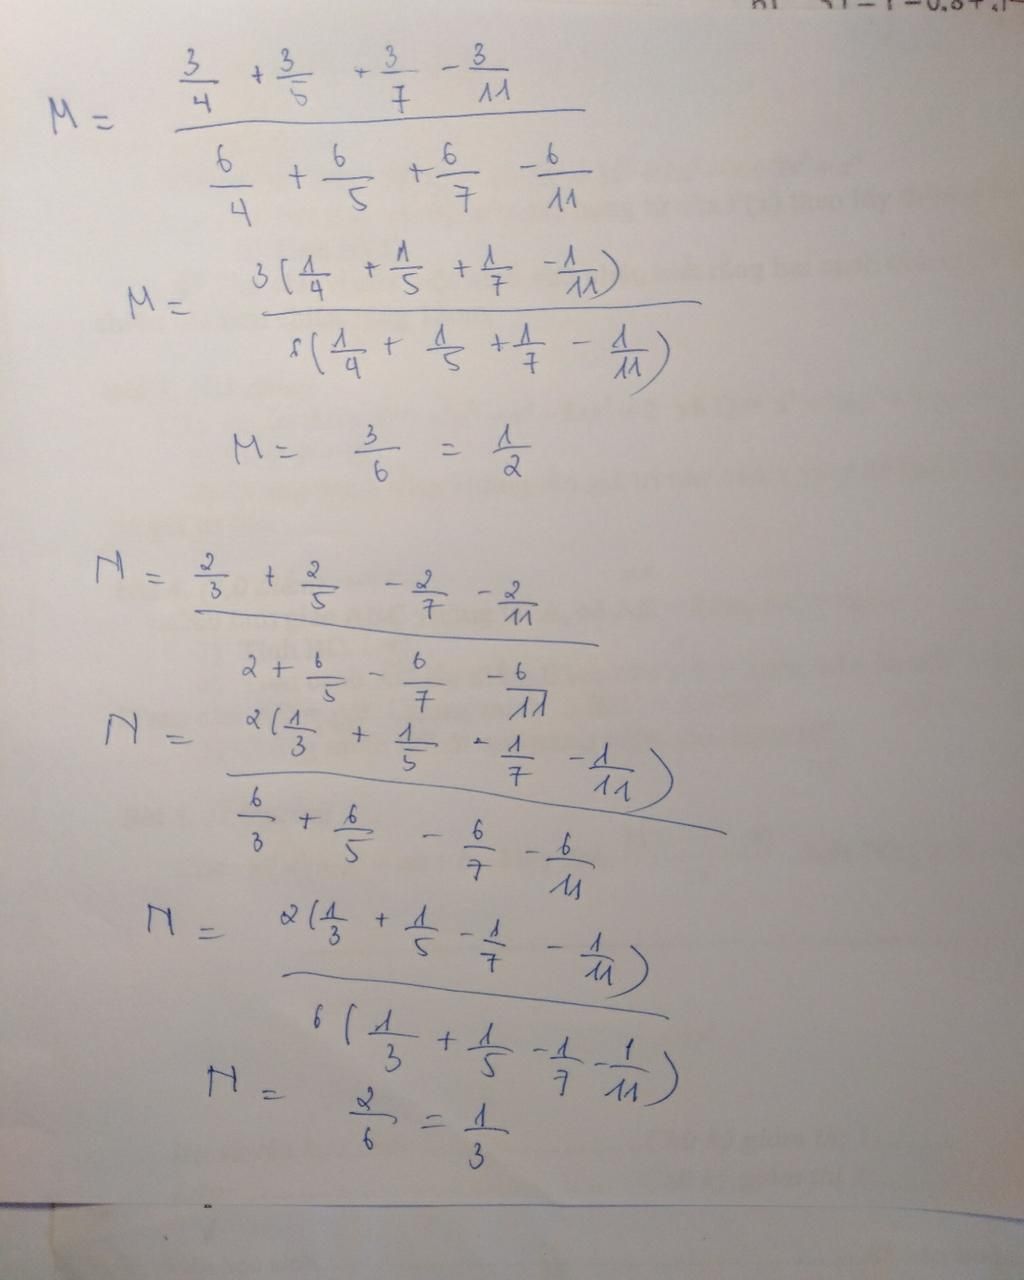 M = (3/4 + 3/5 + 3/7 - 3/11) / (6/4 + 6/5 + 6/7 - 6/11)
M = 3(1/4 + 1/5 + 1/7 - 1/11) / 8(1/4 + 1/5 + 1/7 - 1/11)
M = 3/6 = 1/2
N = (2/3 + 2/5 - 2/7 - 2/11) / (2 + 6/5 - 6/7 - 6/11)
N = 2(1/3 + 1/5 - 1/7 - 1/11) / (6/3 + 6/5 - 6/7 - 6/11)
N = 2(1/3 + 1/5 - 1/7 - 1/11) / 6(1/3 + 1/5 - 1/7 - 1/11)
N = 2/6 = 1/3